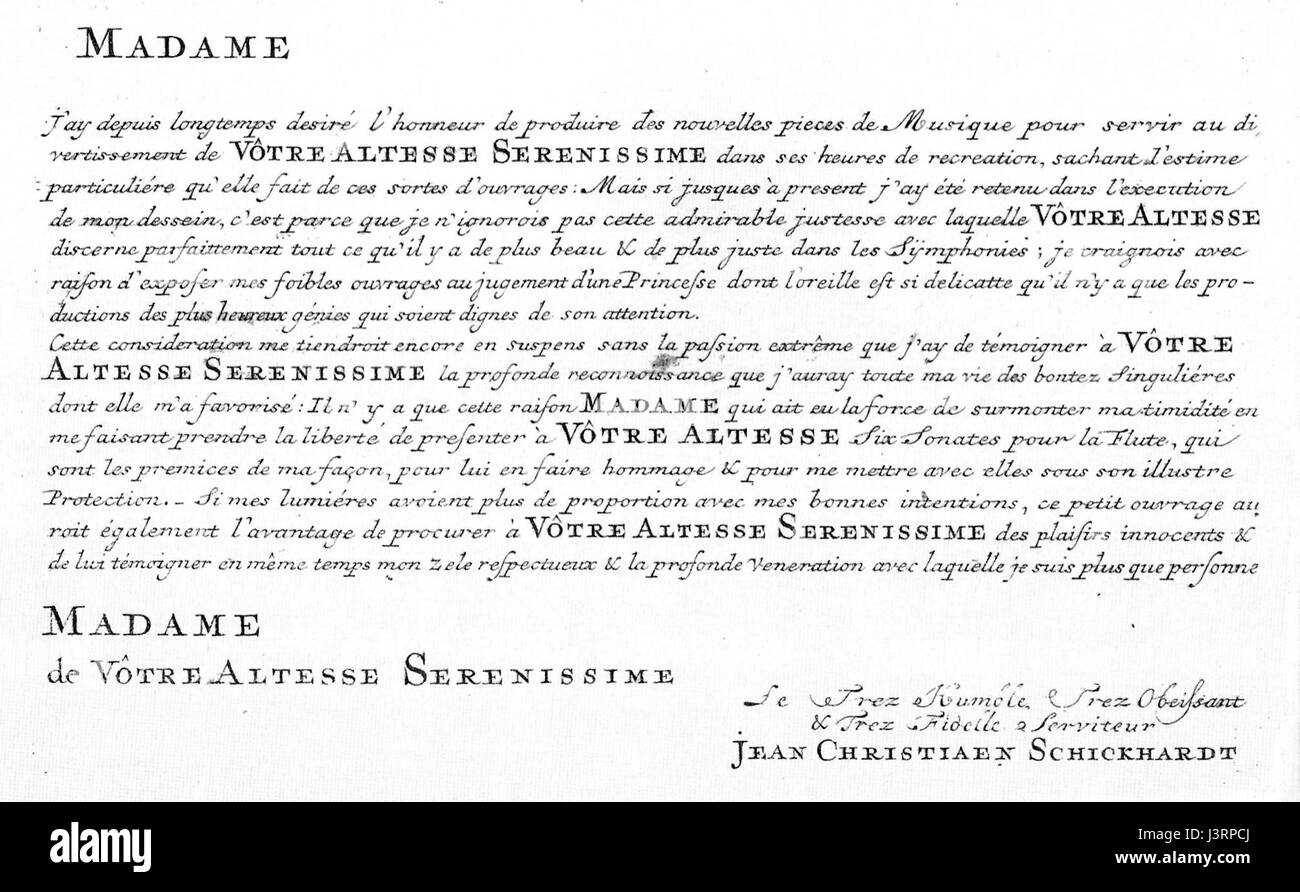 MADAME
J'ay depuis longtemps desiré l'honneur de produire des nouvelles pieces de Musique pour servir au di,
vertissement de VÔTRE ALTESSE SERENISSIME dans ses heures de recreation, sachant l'estime
particuliére qu'elle fait de ces sortes d'ouvrages: Mais si jusques à present j'ay été retenu dans l'execution
de mon dessein, c'est parce que je n'ignorois pas cette admirable justesse avec laquelle VÔTRE ALTESSE
discerne parfaittement tout ce qu'il y a de plus beau & de plus juste dans les Sÿmphonies; je craignois avec
raison d'exposer mes foibles ouvrages au jugement d'une Princesse dont l'oreille est si delicatte qu'il n'y a que les pro-
ductions des plus heureux génies qui soient dignes de son attention.
Cette consideration me tiendroit encore en suspens sans la passion extrême que j'ay de témoigner à VÔTRE
ALTESSE SERENISSIME la profonde reconnoissance que j'auray toute ma vie des bontez singuliéres
dont elle m'a favorisé: Il n'y a que cette raison MADAME qui ait eu la force de surmonter ma timidité en
me faisant prendre la liberté de presenter à VÔTRE ALTESSE Six Sonates pour la Flute, qui
sont les premices de ma façon, pour lui en faire hommage & pour me mettre avec elles sous son illustre
Protection. - Si mes lumiéres avoient plus de proportion avec mes bonnes intentions, ce petit ouvrage au,
roit également l'avantage de procurer à VÔTRE ALTESSE SERENISSIME des plaisirs innocents &
de lui témoigner en même temps mon zele respectueux & la profonde veneration avec laquelle je suis plus que personne
MADAME
de VÔTRE ALTESSE SERENISSIME
Le Trez Humble, Trez Obeissant
& Trez Fidelle Serviteur
JEAN CHRISTIAEN SCHICKHARDT
alamy
Image ID: J3RPCJ
www.alamy.com